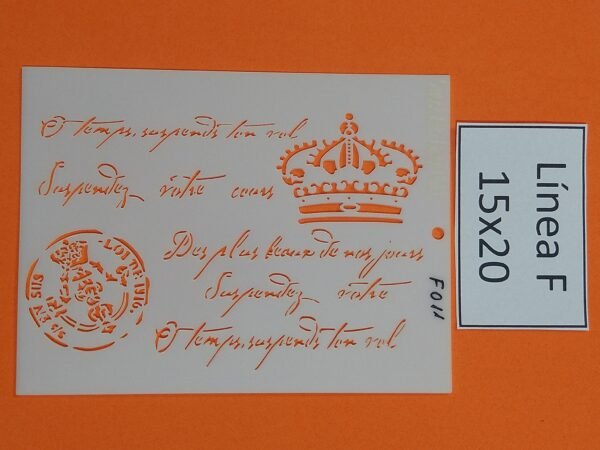 O temps, suspends ton vol
Suspendez votre cours
Des plus beaux de nos jours
Suspendez votre
O temps, suspends ton vol
LOI DE
SUS EN
F011
Línea F
15x20